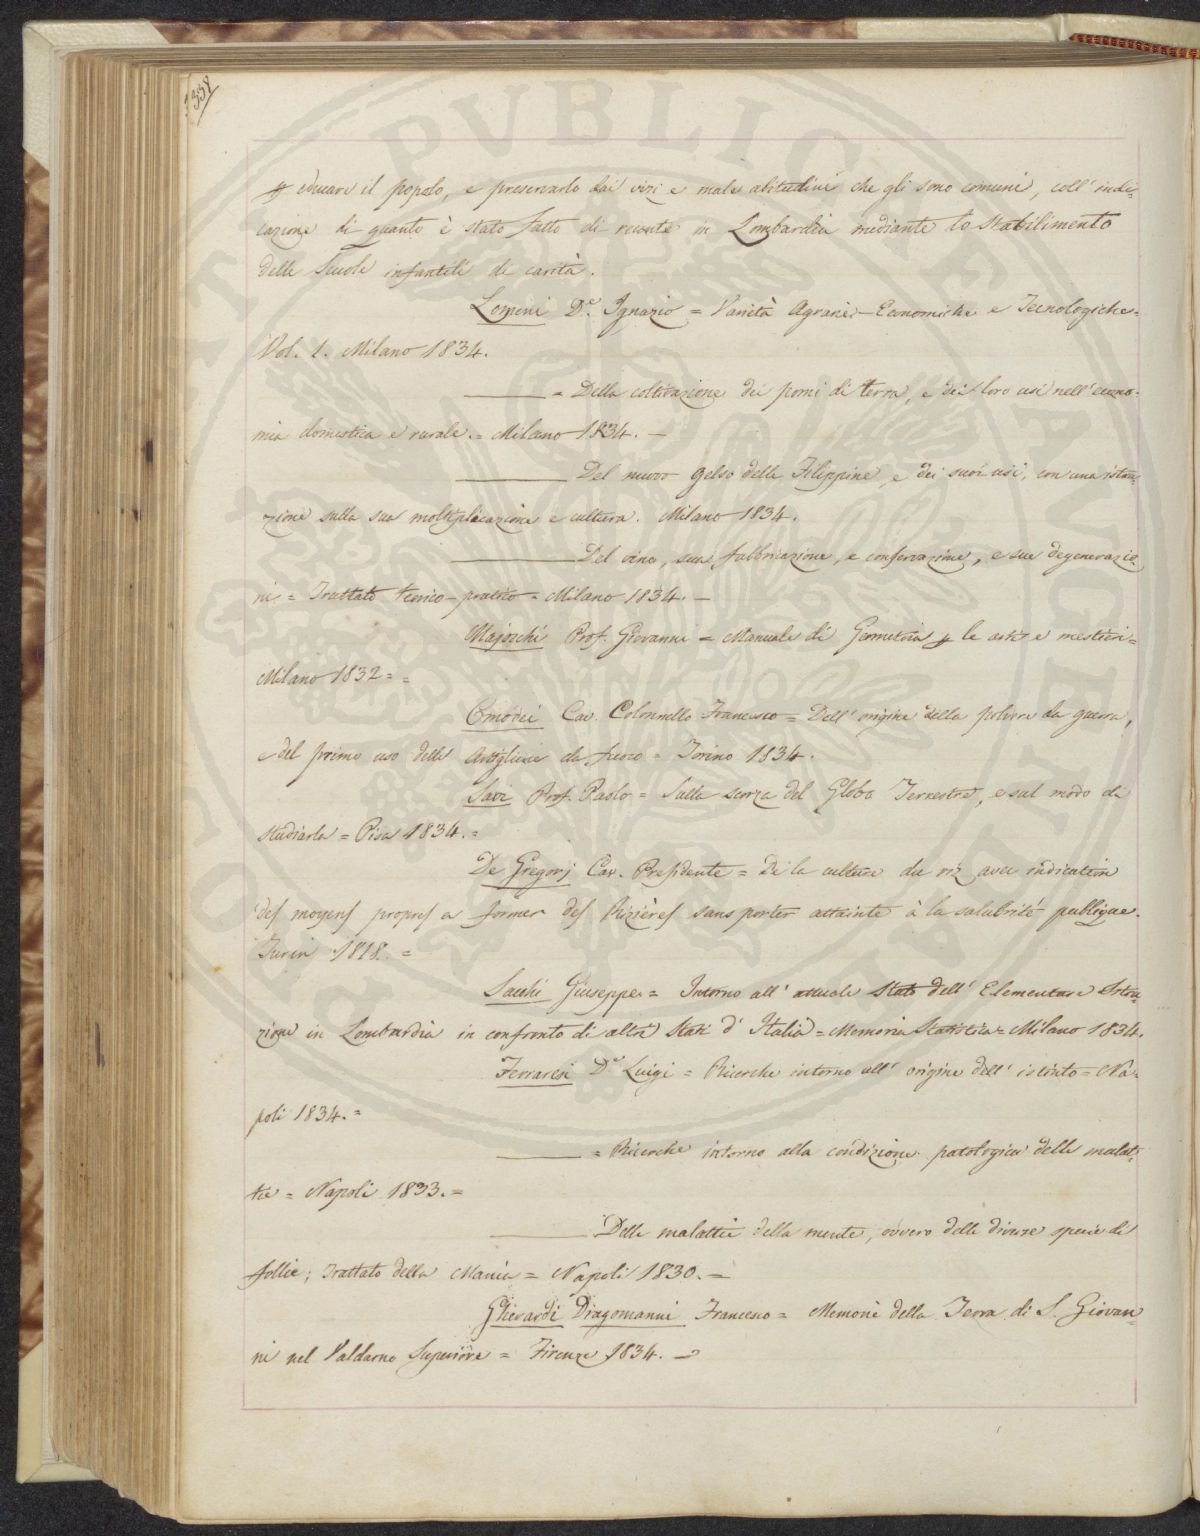 338
p educare il popolo, e preservarlo dai vizi e male abitudini che gli sono comuni, coll' indi=
cazione di quanto è stato fatto di recente in Lombardia mediante lo stabilimento
delle Scuole infantili di carità.
Lomeni D.r Ignazio = Varietà Agrarie - Economiche e Tecnologiche =
Vol. 1. Milano 1834.
= Della coltivazione dei pomi di terra, e dei loro usi nell' econo=
mia domestica e rurale. = Milano 1834. —
Del nuovo gelso delle Filippine, e dei suoi usi, con una istru=
zione sulla sua moltiplicazione e cultura. Milano 1834.
Del vino, sua fabbricazione, e conservazione, e sue degenerazio=
ni = Trattato teorico-pratico = Milano 1834. —
Majocchi Prof. Giovanni = Manuale di Geometria p le arti e mestieri =
Milano 1832 = =
Omodei Cav. Colonnello Francesco = Dell' origine della polvere da guerra,
e del primo uso delle Artiglierie da fuoco = Torino 1834.
Savi Prof. Paolo = Sulla scorza del Globo Terrestre, e sul modo di
studiarla = Pisa 1834. =
De Gregorj Cav. Presidente = De la culture du riz avec indication
des moyens propres a former des Rizières sans porter atteinte à la salubrité publique.
Turin 1818. =
Sacchi Giuseppe = Intorno all' attuale Stato dell' Elementare Istru=
zione in Lombardia in confronto di altri Stati d' Italia = Memoria Statistica = Milano 1834.
Ferraresi D.r Luigi = Ricerche intorno all' origine dell' istinto = Na=
poli 1834. =
= Ricerche intorno alla condizione patologica delle malat=
tie = Napoli 1833. =
Delle malattie della mente, ovvero delle diverse specie di
follie; Trattato della Mania = Napoli 1830. —
Gherardi Dragomanni Francesco = Memorie della Terra di S. Giovan=
ni nel Valdarno Superiore = Firenze 1834. —